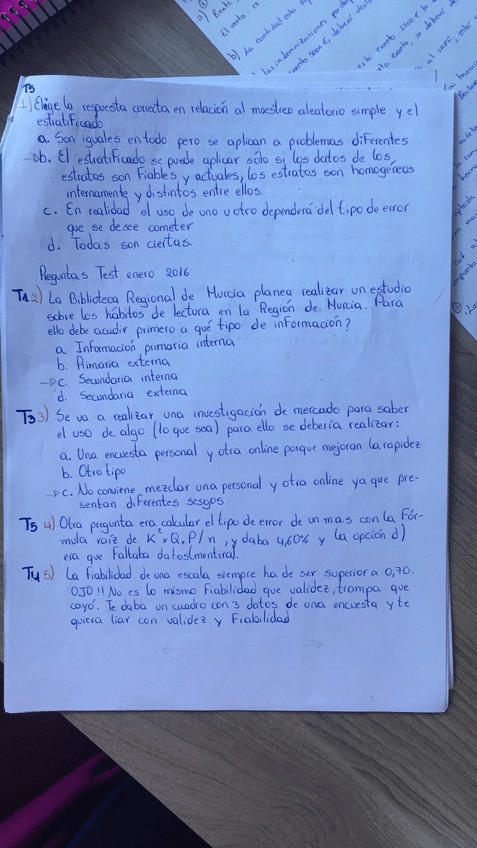 a) Renta
El resto
b) La cantidad
las indemnizaciones
T5
1) Elige la respuesta correcta en relación al muestreo aleatorio simple y el
estratificado
a. Son iguales en todo pero se aplican a problemas diferentes
→b. El estratificado se puede aplicar sólo si los datos de los
estratos son fiables y actuales, los estratos son homogéneos
internamente y distintos entre ellos.
c. En realidad el uso de uno u otro dependerá del tipo de error
que se desee cometer
d. Todas son ciertas.
Preguntas Test enero 2016
T1 2) La Biblioteca Regional de Murcia planea realizar un estudio
sobre los hábitos de lectura en la Región de Murcia. Para
ello debe acudir primero a qué tipo de información?
a. Información primaria interna
b. Primaria externa
→c. Secundaria interna
d. Secundaria externa
T3 3) Se va a realizar una investigación de mercado para saber
el uso de algo (lo que sea) para ello se debería realizar:
a. Una encuesta personal y otra online porque mejoran la rapidez
b. Otro tipo
→c. No conviene mezclar una personal y otra online ya que pre-
sentan diferentes sesgos
T5 4) Otra pregunta era calcular el tipo de error de un m.a.s con la fór-
mula raíz de K²xQxP/n, y daba 4,60% y la opción d)
era que faltaba datos(mentira).
T4 5) La fiabilidad de una escala siempre ha de ser superior a 0,70.
OJO!! No es lo mismo fiabilidad que validez, trampa que
cayó. Te daba un cuadro con 3 datos de una encuesta y te
quería liar con validez y fiabilidad